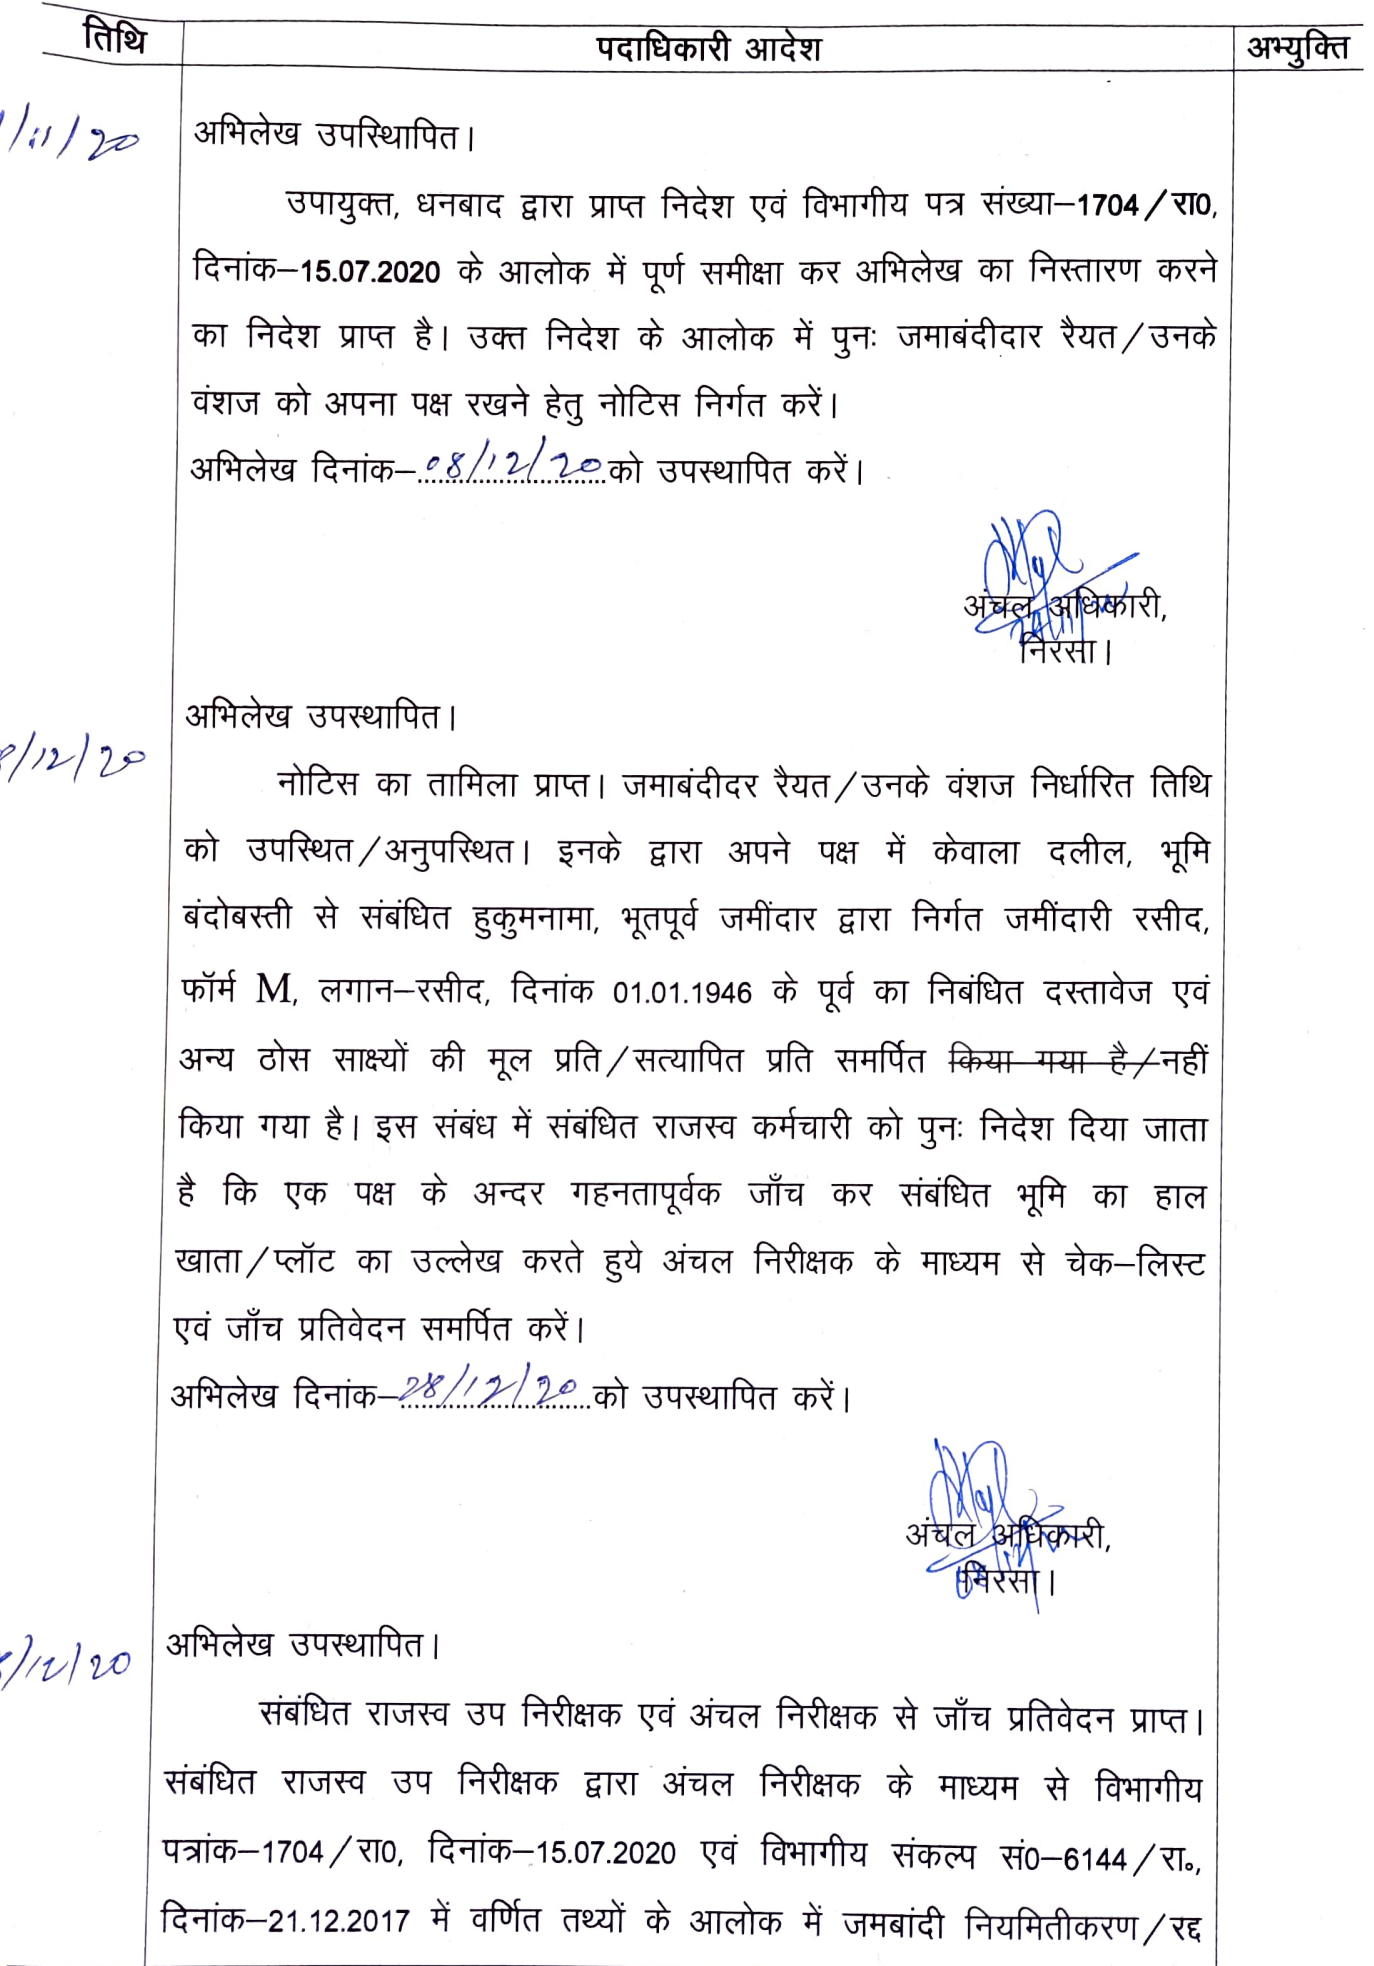 तिथि पदाधिकारी आदेश अभ्युक्ति
/11/20 अभिलेख उपस्थिापित।
उपायुक्त, धनबाद द्वारा प्राप्त निदेश एवं विभागीय पत्र संख्या–1704/रा0,
दिनांक–15.07.2020 के आलोक में पूर्ण समीक्षा कर अभिलेख का निस्तारण करने
का निदेश प्राप्त है। उक्त निदेश के आलोक में पुनः जमाबंदीदार रैयत/उनके
वंशज को अपना पक्ष रखने हेतु नोटिस निर्गत करें।
अभिलेख दिनांक–08/12/20 को उपस्थापित करें।
अंचल अधिकारी,
निरसा।
अभिलेख उपस्थापित।
8/12/20
नोटिस का तामिला प्राप्त। जमाबंदीदर रैयत/उनके वंशज निर्धारित तिथि
को उपस्थित/अनुपस्थित। इनके द्वारा अपने पक्ष में केवाला दलील, भूमि
बंदोबस्ती से संबंधित हुकुमनामा, भूतपूर्व जमींदार द्वारा निर्गत जमींदारी रसीद,
फॉर्म M, लगान–रसीद, दिनांक 01.01.1946 के पूर्व का निबंधित दस्तावेज एवं
अन्य ठोस साक्ष्यों की मूल प्रति/सत्यापित प्रति समर्पित किया गया है/नहीं
किया गया है। इस संबंध में संबंधित राजस्व कर्मचारी को पुनः निदेश दिया जाता
है कि एक पक्ष के अन्दर गहनतापूर्वक जाँच कर संबंधित भूमि का हाल
खाता/प्लॉट का उल्लेख करते हुये अंचल निरीक्षक के माध्यम से चेक–लिस्ट
एवं जाँच प्रतिवेदन समर्पित करें।
अभिलेख दिनांक–28/12/20 को उपस्थापित करें।
अंचल अधिकारी,
निरसा।
अभिलेख उपस्थापित।
8/12/20
संबंधित राजस्व उप निरीक्षक एवं अंचल निरीक्षक से जाँच प्रतिवेदन प्राप्त।
संबंधित राजस्व उप निरीक्षक द्वारा अंचल निरीक्षक के माध्यम से विभागीय
पत्रांक–1704/रा0, दिनांक–15.07.2020 एवं विभागीय संकल्प सं0–6144/रा०,
दिनांक–21.12.2017 में वर्णित तथ्यों के आलोक में जमबांदी नियमितीकरण/रद्द